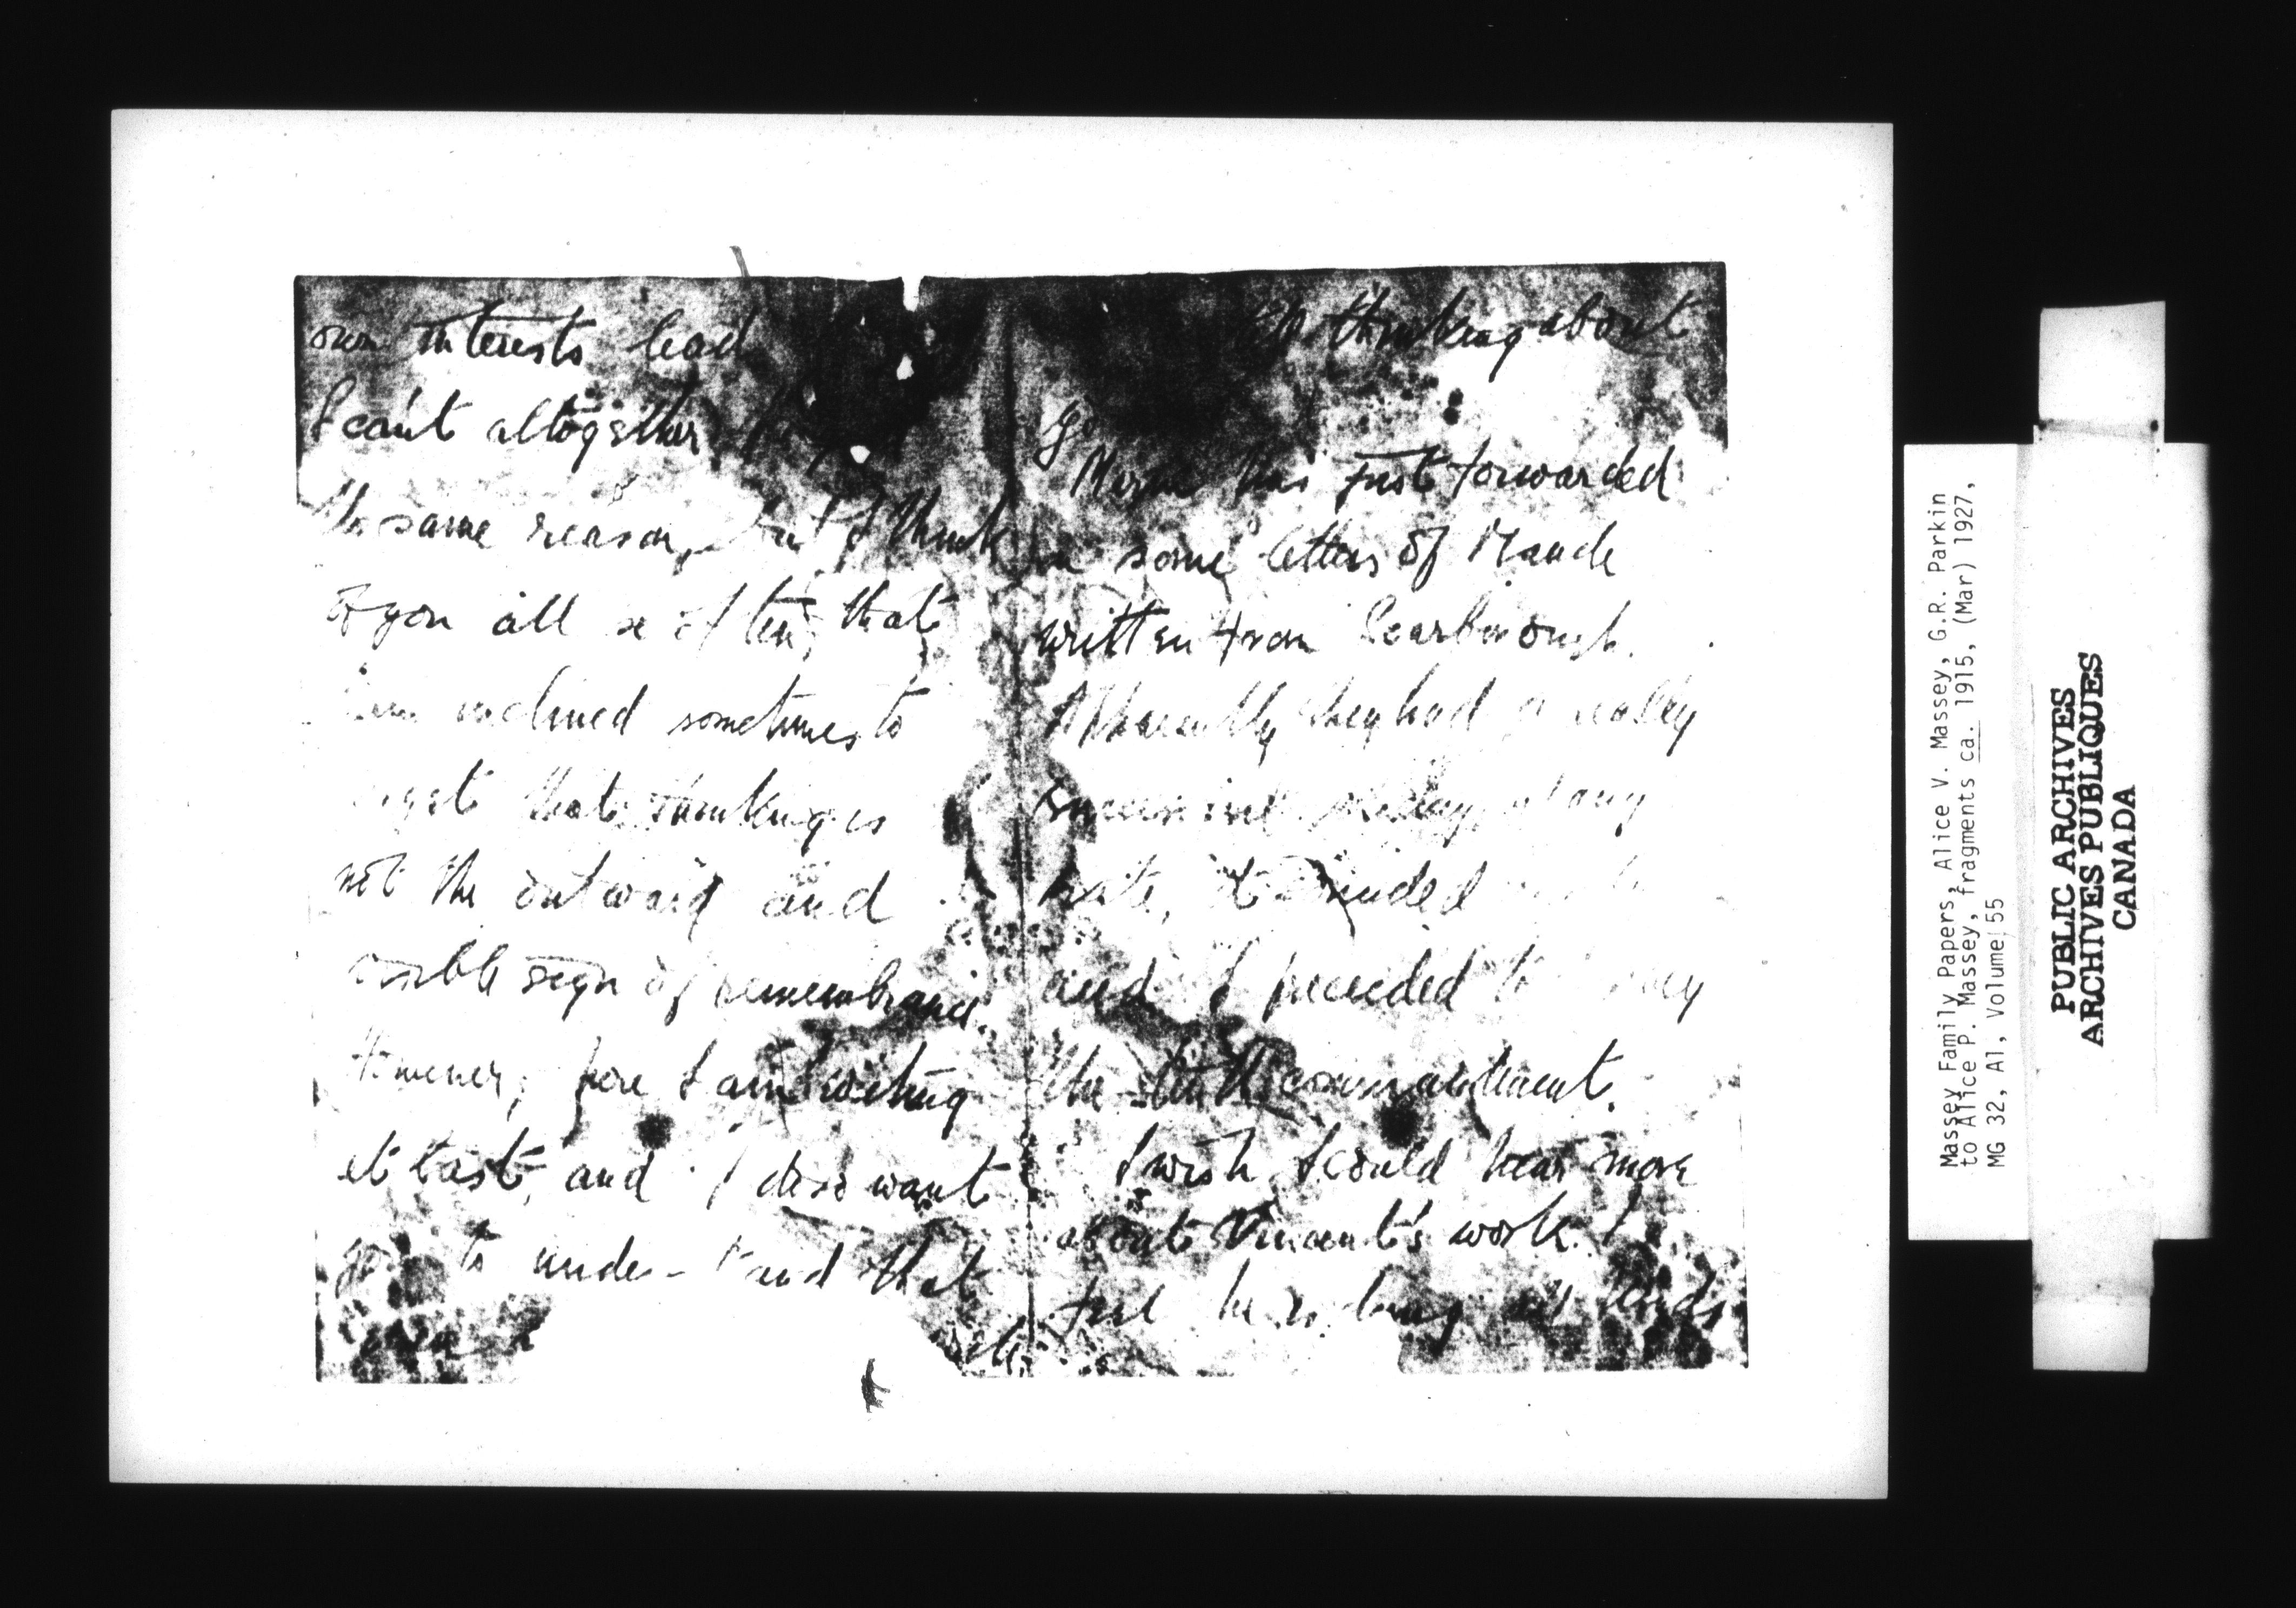 own interests lead
I can't altogether
the same reason, but I think
of you all so often, that
inclined sometimes to
that thinking is
not the outward and
visible sign of remembrance.
However, here I am writing
at last, and I do so want
to understand that
even
thinking about
has just forwarded
some letters of Maude
written from Scarborough.
Apparently they had a really
at any
rate, it sounded
and I proceeded to
the tenth commandment.
I wish I could hear more
about Vincent's work. I
feel he is doing all kinds
Massey Family Papers, Alice V. Massey, G.R. Parkin
to Alice P. Massey, fragments ca. 1915, (Mar) 1927,
MG 32, A1, Volume 55
PUBLIC ARCHIVES
ARCHIVES PUBLIQUES
CANADA